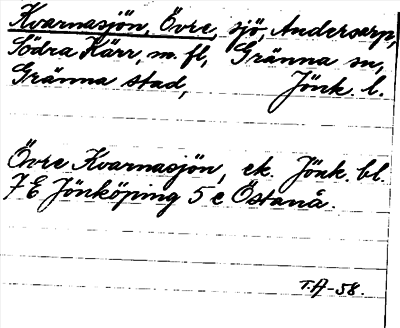 Kvarnasjön, Övre, sjö, Andersarp,
Södra Kärr, m. fl, Gränna sn,
Gränna stad, Jönk. l.
Övre Kvarnasjön, ek. Jönk. bl.
7E Jönköping 5 e Östanå.
T.A-58.